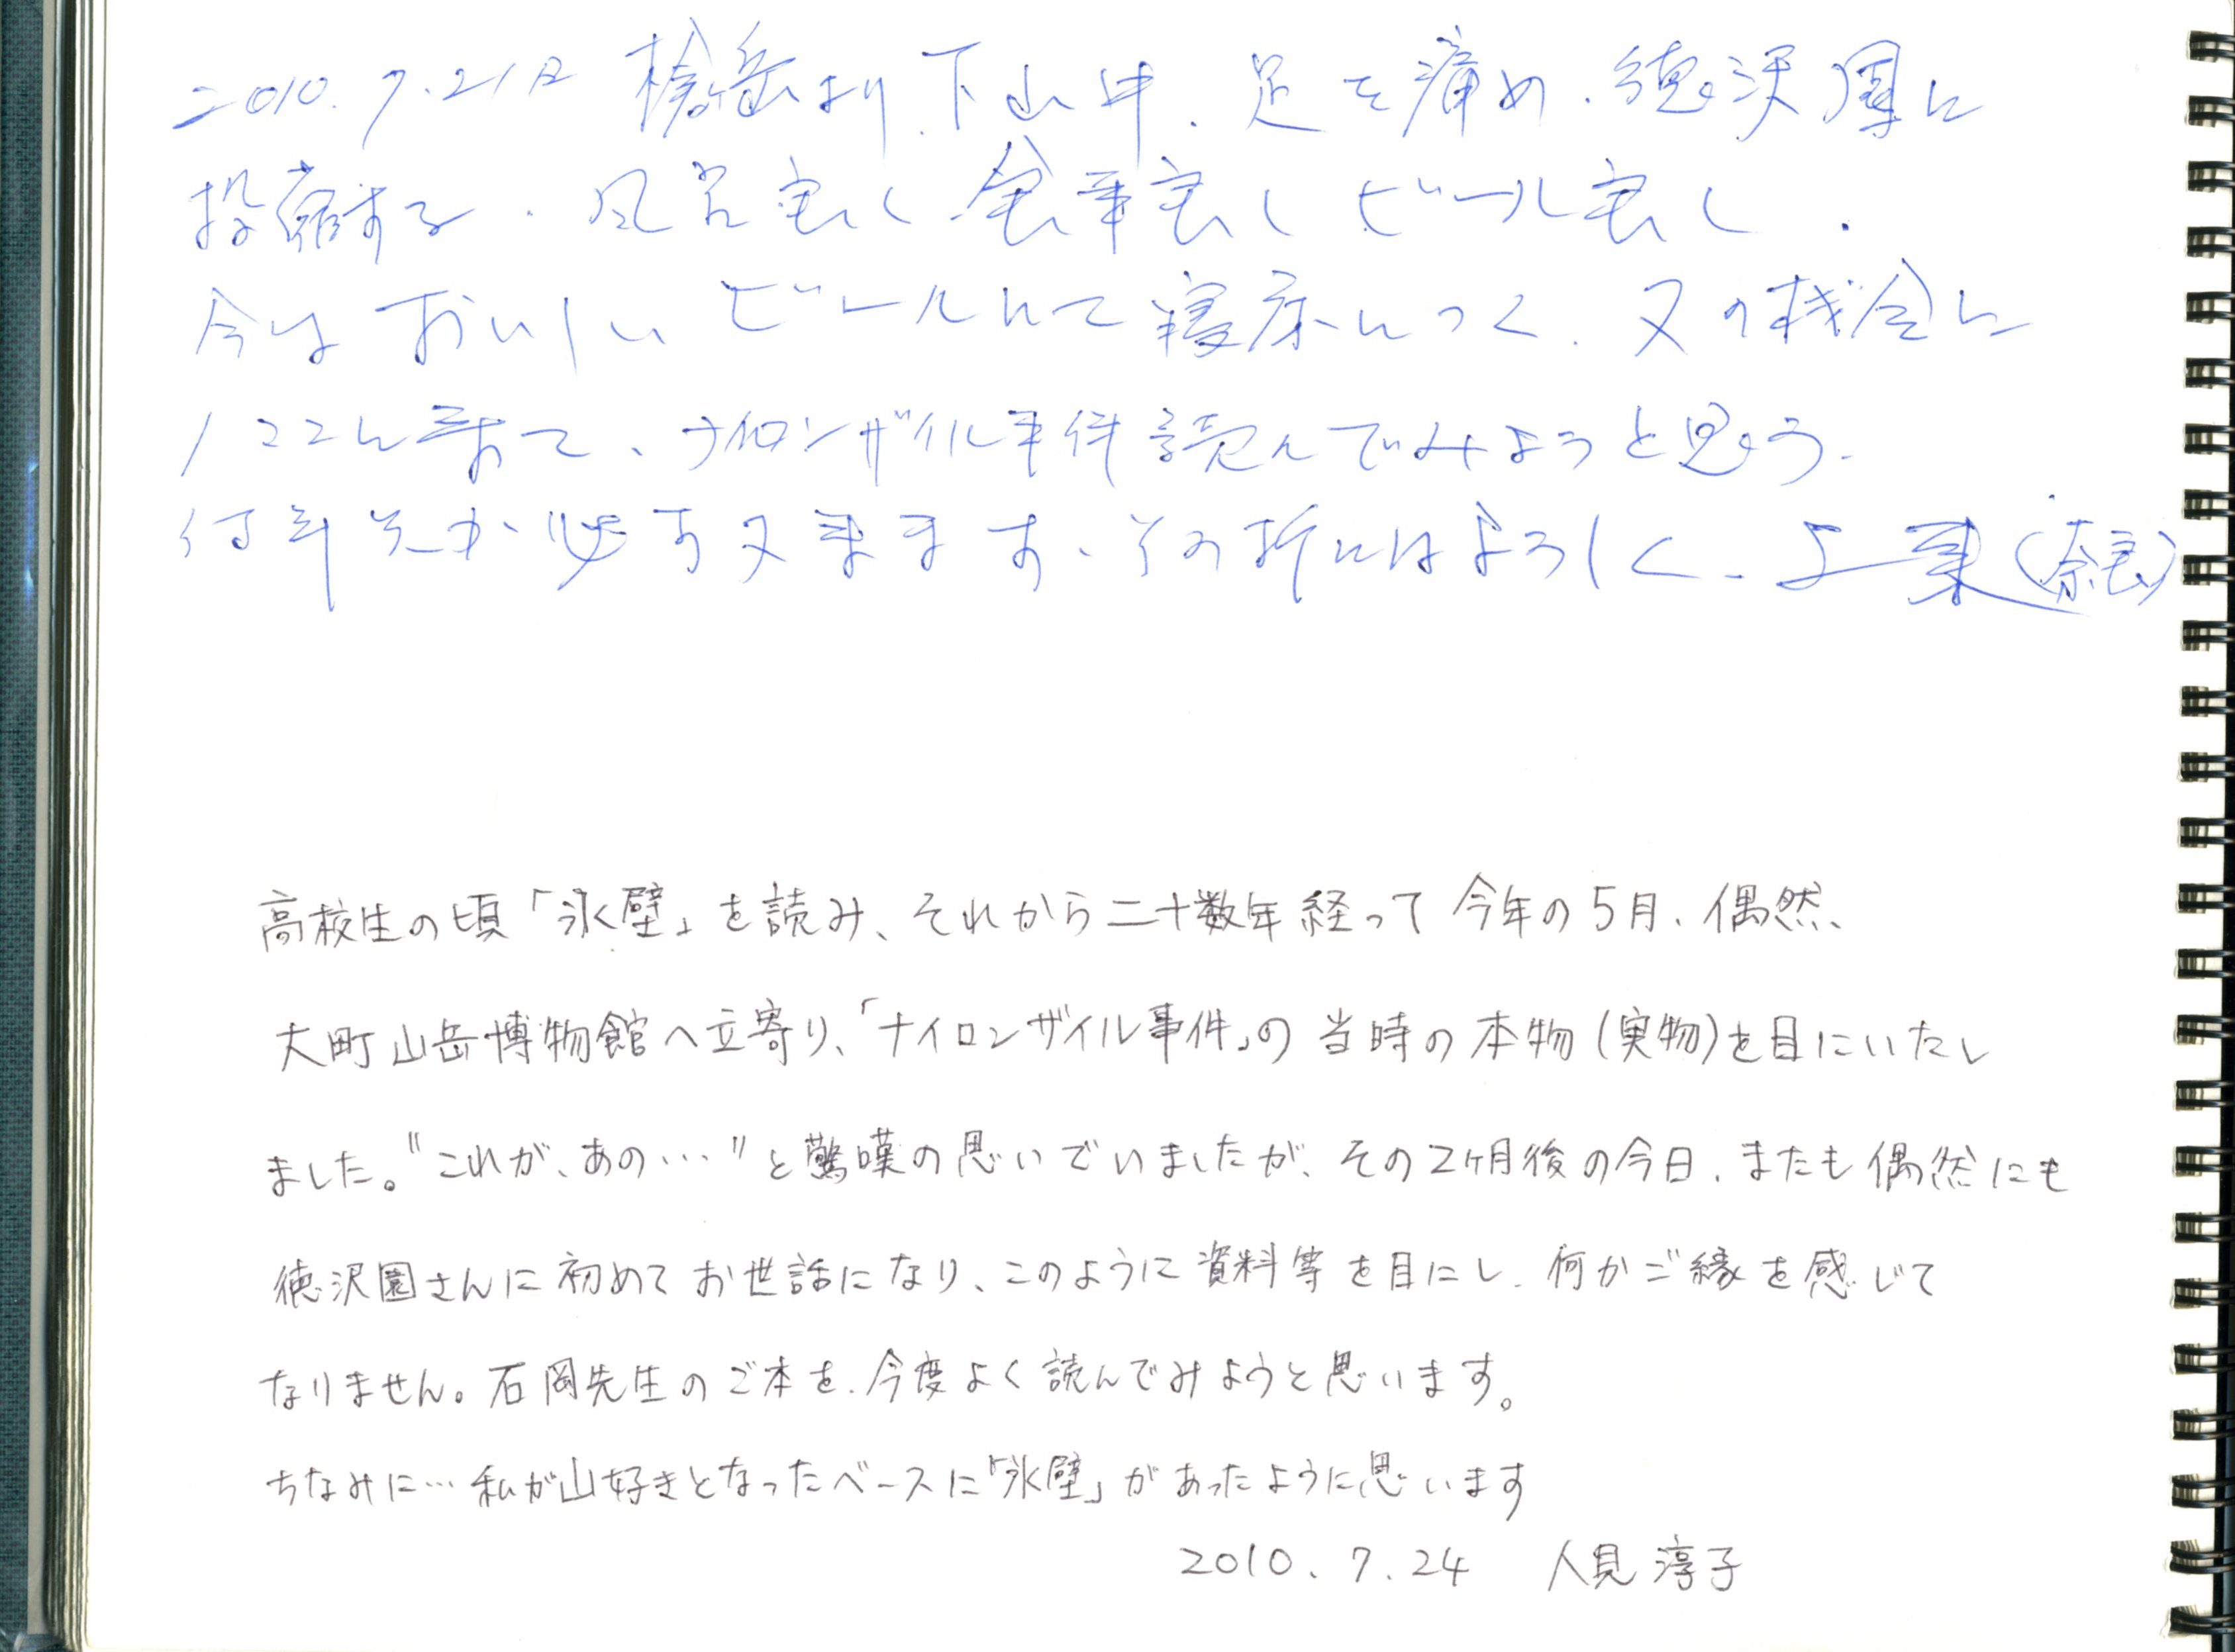 2010.7.21日 槍ヶ岳より、下山中、足を痛め、徳沢園に
投宿する。風呂良く食事良しビール良し。
今はおいしいビールにて寝床につく。又の機会に
ココに来て、ナイロンザイル事件読んでみようと思う。
何年先か必ず又来ます、その折にはよろしく、上東(奈良)
高校生の頃「氷壁」を読み、それから二十数年経って今年の5月、偶然、
大町山岳博物館へ立寄り、「ナイロンザイル事件」の当時の本物(実物)を目にいたし
ました。"これが、あの…"と驚嘆の思いでいましたが、その2ヶ月後の今日、またも偶然にも
徳沢園さんに初めてお世話になり、このように資料等を目にし、何かご縁を感じて
なりません。石岡先生のご本を、今度よく読んでみようと思います。
ちなみに…私が山好きとなったベースに「氷壁」があったように思います
2010.7.24 人見淳子